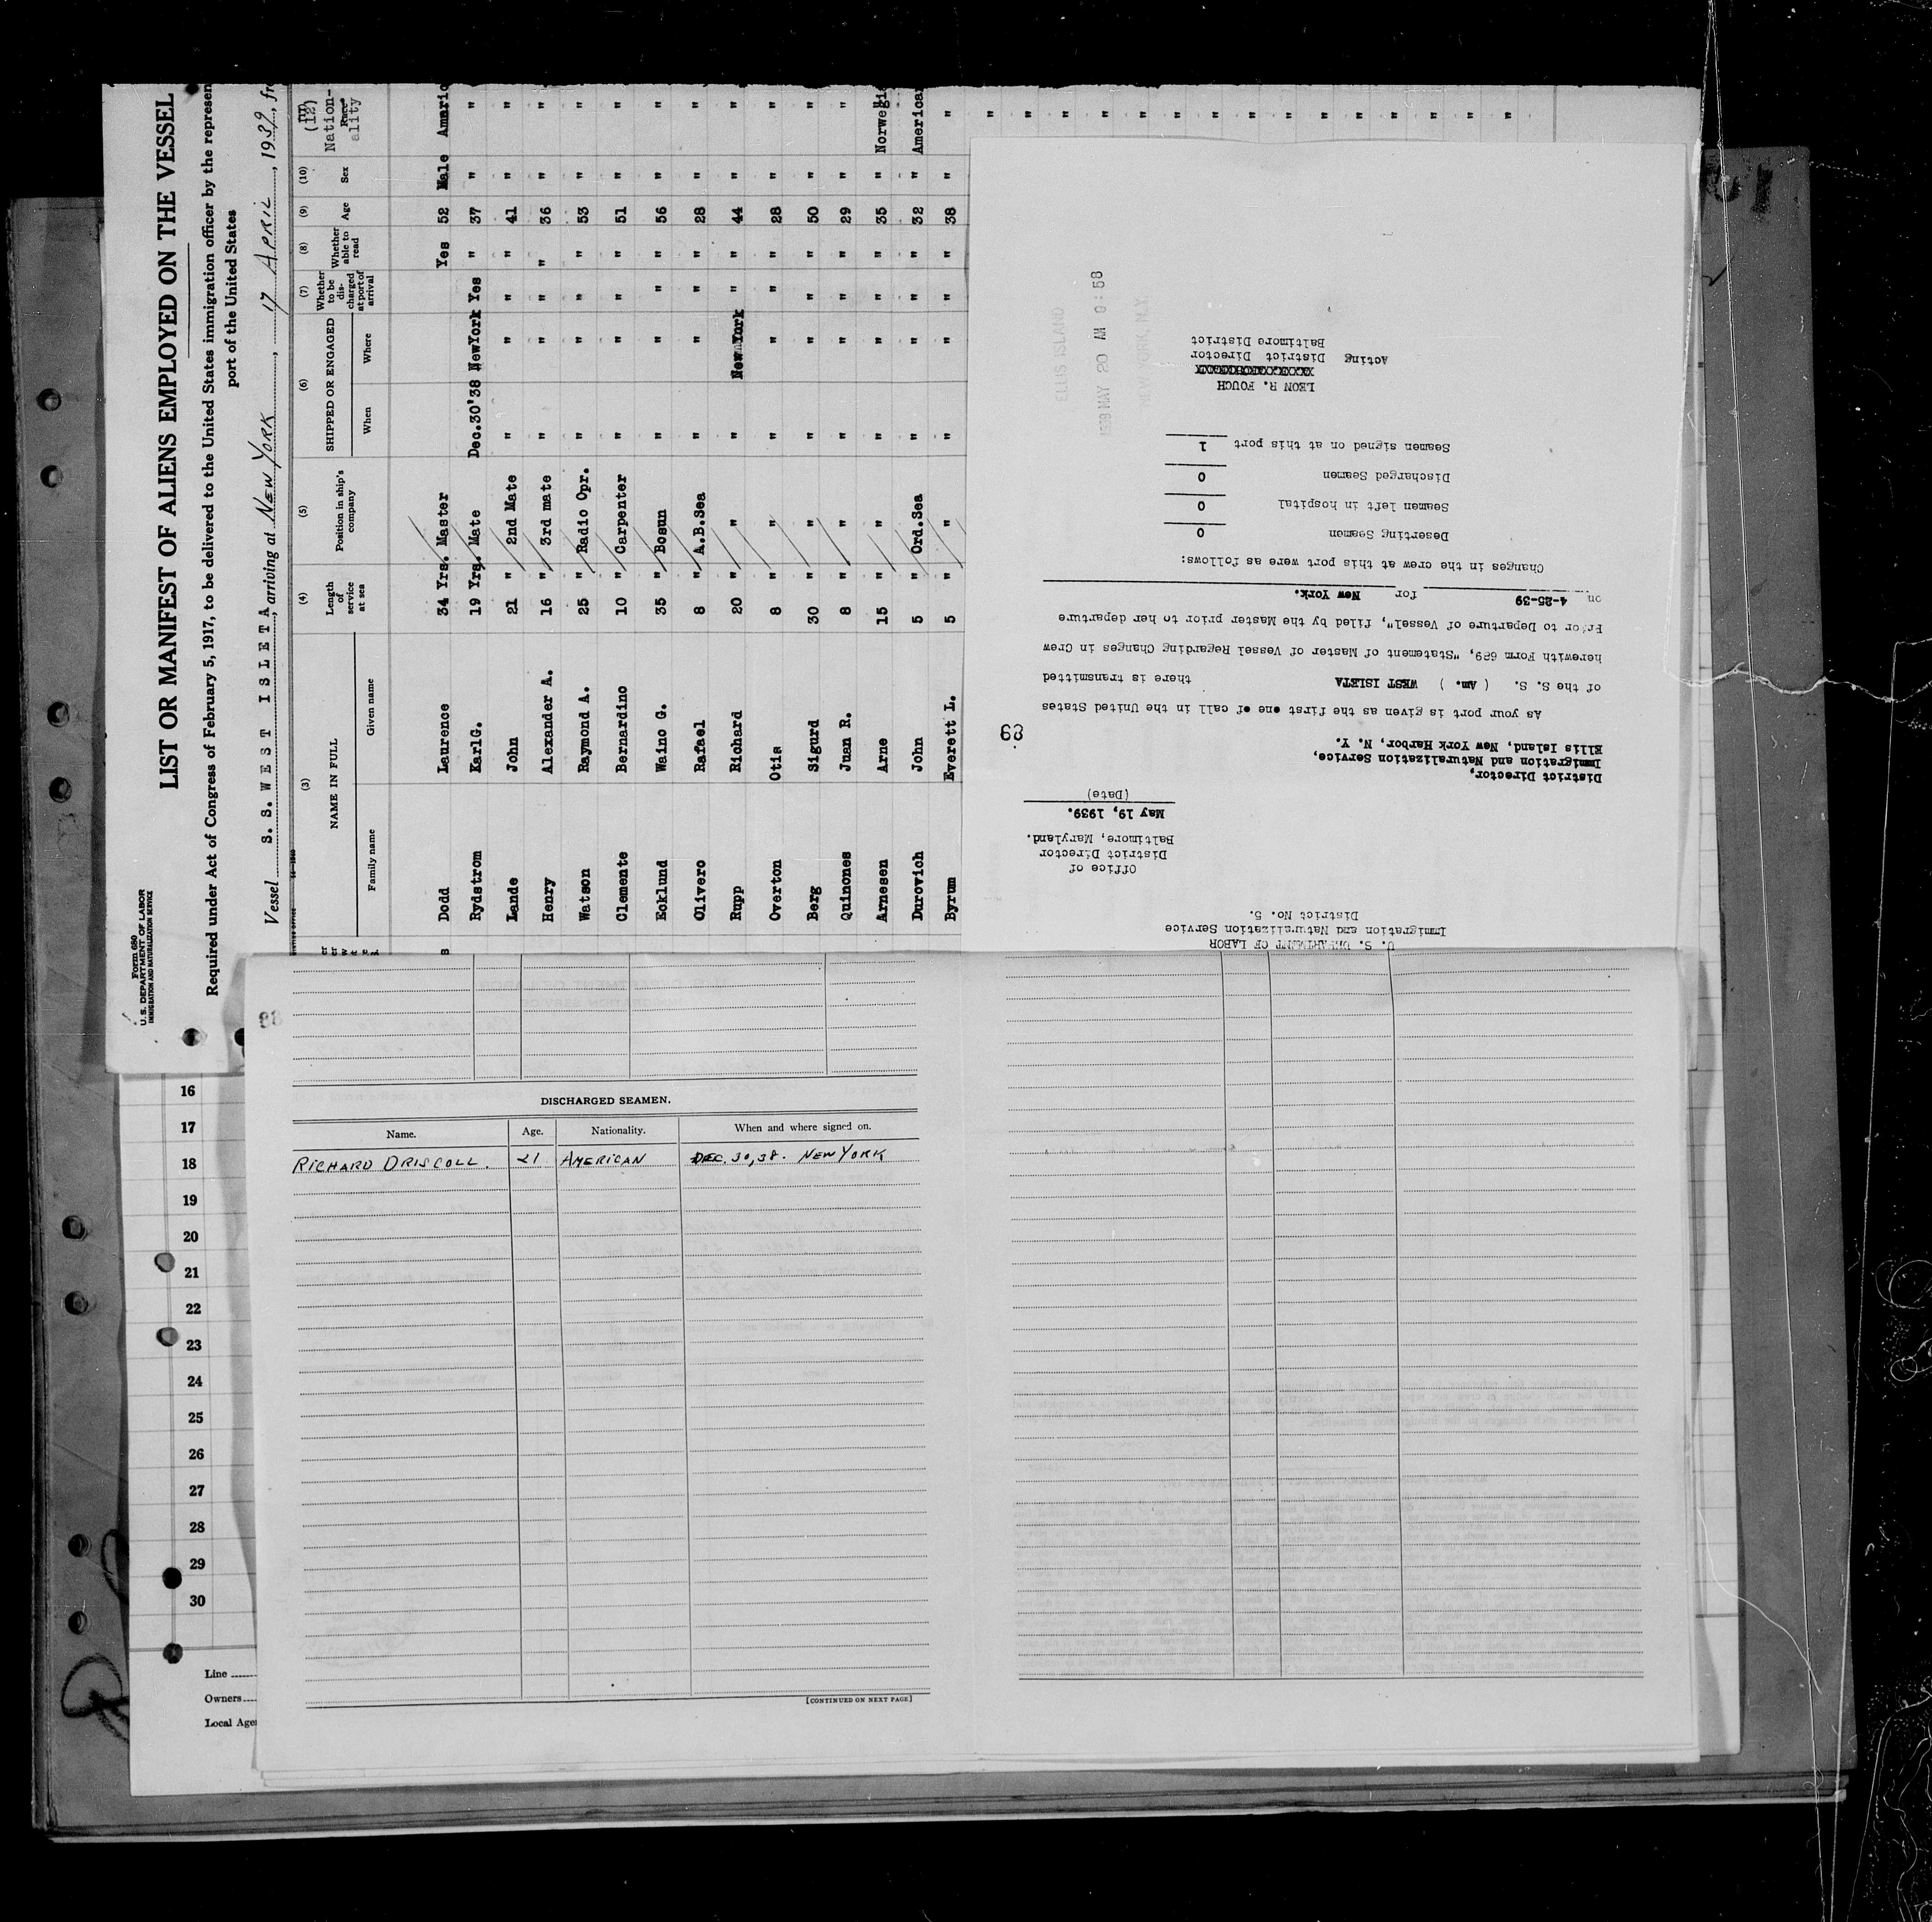 Form 680
U. S. DEPARTMENT OF LABOR
IMMIGRATION AND NATURALIZATION SERVICE
LIST OR MANIFEST OF ALIENS EMPLOYED ON THE VESSEL
Required under Act of Congress of February 5, 1917, to be delivered to the United States immigration officer by the represen
port of the United States
Vessel S. S. WEST ISLETA, arriving at NEW YORK, 17 APRIL, 1939, fr
(3) (4) (5) (6) (7) (8) (9) (10) (12)
NAME IN FULL Length of service at sea Position in ship's company SHIPPED OR ENGAGED Whether to be discharged at port of arrival Whether able to read Age Sex Nation-ality
Family name Given name When Where
Dodd Laurence 34 Yrs. Master Yes 52 Male Americ
Rydstrom KarlG. 19 Yrs. Mate Dec.30'38 NewYork Yes " 37 " "
Lande John 21 " 2nd Mate " " " " 41 " "
Henry Alexander A. 16 " 3rd mate " " " " 36 " "
Watson Raymond A. 25 " Radio Opr. " " " " 53 " "
Clemente Bernardino 10 " Carpenter " " " " 51 " "
Ecklund Waino G. 35 " Bosun " " " " 56 " "
Olivero Rafael 8 " A.B.Sea " " " " 28 " "
Rupp Richard 20 " " " New York " " 44 " "
Overton Otis 8 " " " " " " 28 " "
Berg Sigurd 30 " " " " " 50 " "
Quinones Juan R. 8 " " " " " " 29 " "
Arnesen Arne 15 " " " " " " 35 " Norwegi
Durovich John 5 " Ord.Sea " " " " 32 " American
Byrum Everett L. 5 " " " " " " 38 " "
U. S. DEPARTMENT OF LABOR
Immigration and Naturalization Service
District No. 5.
Office of
District Director
Baltimore, Maryland.
May 19, 1939.
(Date)
District Director,
Immigration and Naturalization Service,
Ellis Island, New York Harbor, N. Y.
68
As your port is given as the first one of call in the United States
of the S. S. ( Am. ) WEST ISLETA there is transmitted
herewith Form 689, "Statement of Master of Vessel Regarding Changes in Crew
Prior to Departure of Vessel", filed by the Master prior to her departure
on 4-25-39 for New York.
Changes in the crew at this port were as follows:
Deserting Seamen 0
Seamen left in hospital 0
Discharged Seamen 0
Seamen signed on at this port 1
LEON R. FOUCH
Acting District Director
Baltimore District
ELLIS ISLAND
1939 MAY 20 AM 9:58
NEW YORK, N.Y.
DISCHARGED SEAMEN.
Name. Age. Nationality. When and where signed on.
RICHARD DRISCOLL. 21 AMERICAN DEC. 30, 38. NEW YORK
[CONTINUED ON NEXT PAGE]
16
17
18
19
20
21
22
23
24
25
26
27
28
29
30
Line
Owners
Local Age